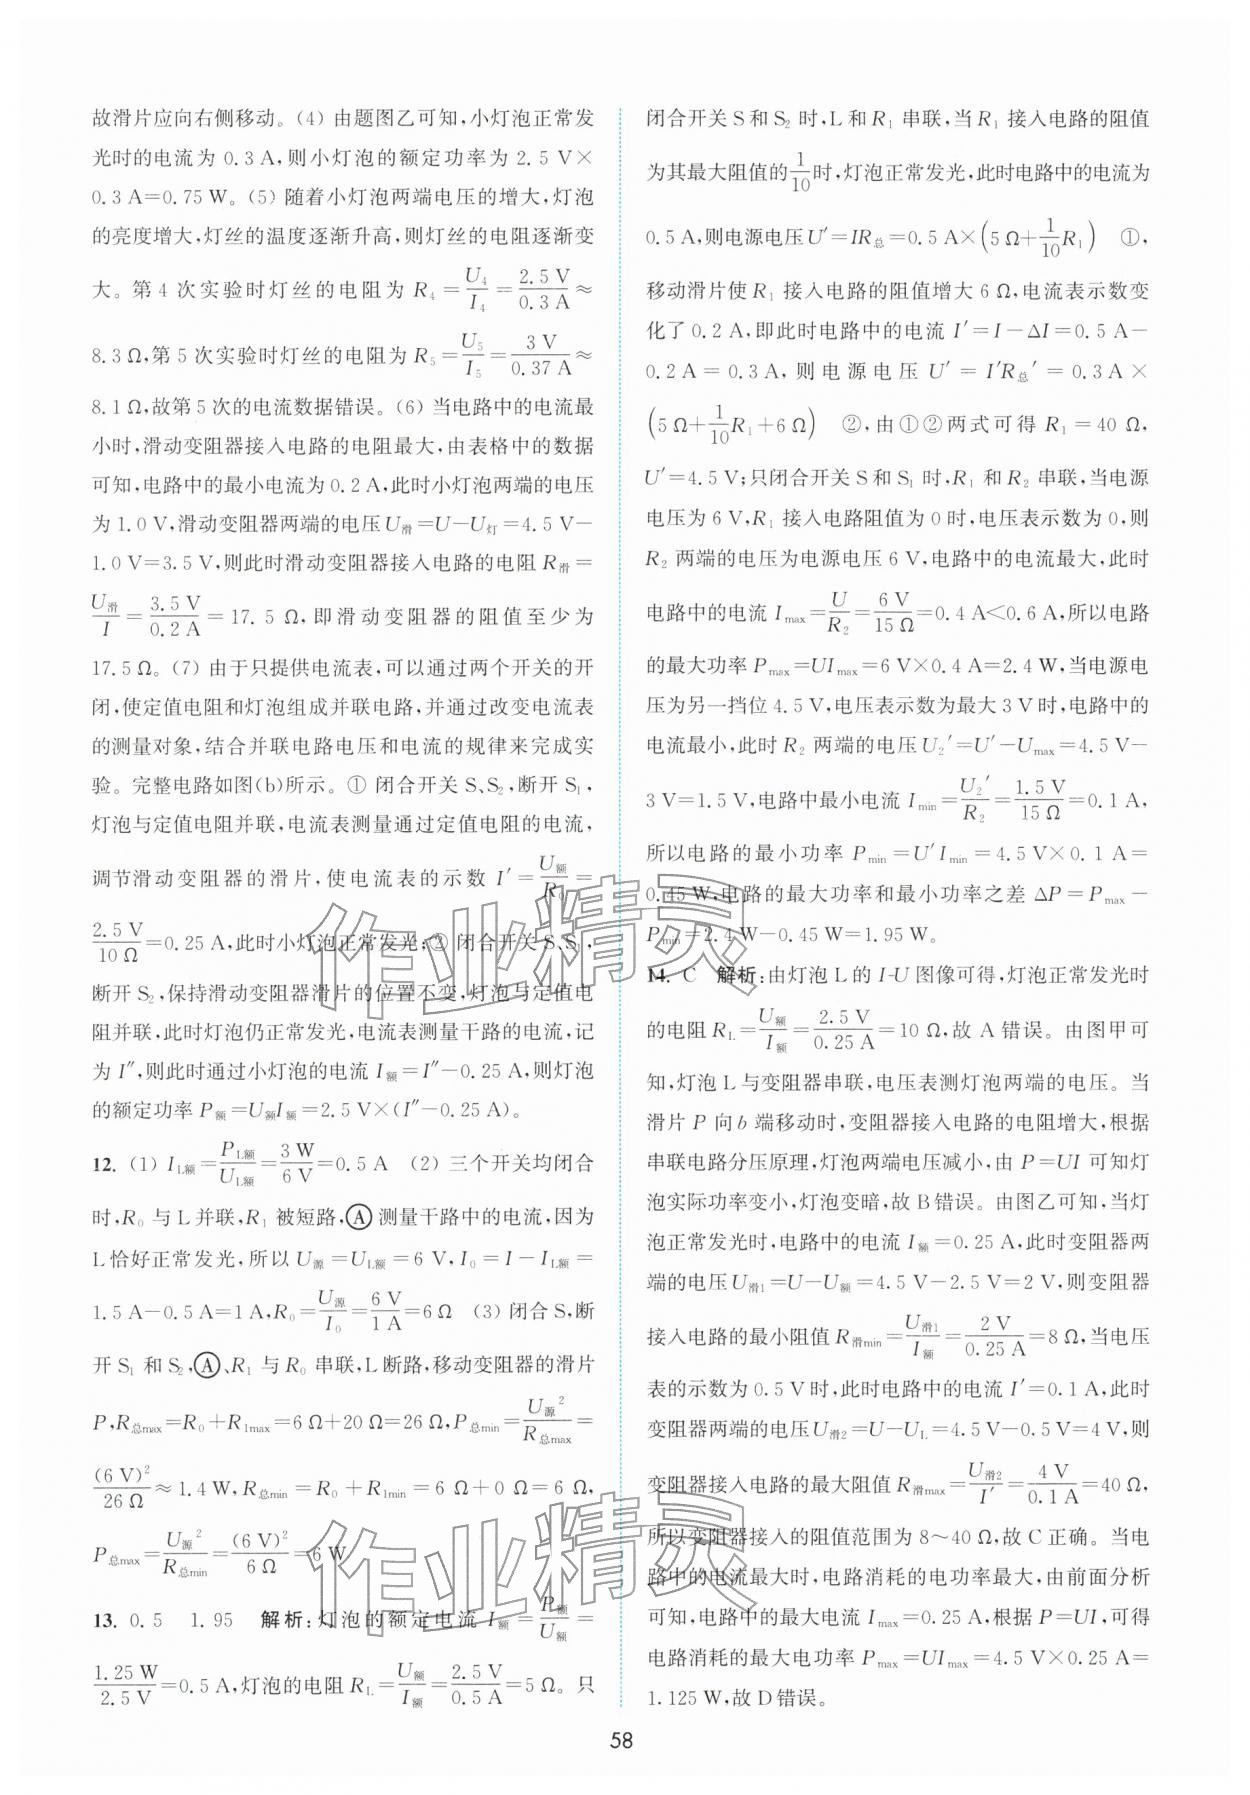 故滑片应向右侧移动。(4) 由题图乙可知,小灯泡正常发
光时的电流为 0.3 A,则小灯泡的额定功率为 2.5 V×
0.3 A=0.75 W。(5) 随着小灯泡两端电压的增大,灯泡
的亮度增大,灯丝的温度逐渐升高,则灯丝的电阻逐渐变
大。第 4 次实验时灯丝的电阻为 R₄=U₄/I₄=2.5 V/0.3 A≈
8.3 Ω,第 5 次实验时灯丝的电阻为 R₅=U₅/I₅=3 V/0.37 A≈
8.1 Ω,故第 5 次的电流数据错误。(6) 当电路中的电流最
小时,滑动变阻器接入电路的电阻最大,由表格中的数据
可知,电路中的最小电流为 0.2 A,此时小灯泡两端的电压
为 1.0 V,滑动变阻器两端的电压 U滑=U-U灯=4.5 V-
1.0 V=3.5 V,则此时滑动变阻器接入电路的电阻 R滑=
U滑/I=3.5 V/0.2 A=17.5 Ω,即滑动变阻器的阻值至少为
17.5 Ω。(7) 由于只提供电流表,可以通过两个开关的开
闭,使定值电阻和灯泡组成并联电路,并通过改变电流表
的测量对象,结合并联电路电压和电流的规律来完成实
验。完整电路如图(b)所示。① 闭合开关 S、S₂,断开 S₁,
灯泡与定值电阻并联,电流表测量通过定值电阻的电流,
调节滑动变阻器的滑片,使电流表的示数 I′=U额/R₀=
2.5 V/10 Ω=0.25 A,此时小灯泡正常发光;② 闭合开关 S、S₁,
断开 S₂,保持滑动变阻器滑片的位置不变,灯泡与定值电
阻并联,此时灯泡仍正常发光,电流表测量干路的电流,记
为 I″,则此时通过小灯泡的电流 I额=I″-0.25 A,则灯泡
的额定功率 P额=U额I额=2.5 V×(I″-0.25 A)。
12. (1) I_L额=P_L额/U_L额=3 W/6 V=0.5 A (2) 三个开关均闭合
时,R₀ 与 L 并联,R₁ 被短路,Ⓐ测量干路中的电流,因为
L 恰好正常发光,所以 U源=U_L额=6 V,I₀=I-I_L额=
1.5 A-0.5 A=1 A,R₀=U源/I₀=6 V/1 A=6 Ω (3) 闭合 S,断
开 S₁ 和 S₂,Ⓐ、R₁ 与 R₀ 串联,L 断路,移动变阻器的滑片
P,R总max=R₀+R₁max=6 Ω+20 Ω=26 Ω,P总min=U源²/R总max=
(6 V)²/26 Ω≈1.4 W,R总min=R₀+R₁min=6 Ω+0 Ω=6 Ω,
P总max=U源²/R总min=(6 V)²/6 Ω=6 W
13. 0.5 1.95 解析:灯泡的额定电流 I额=P额/U额=
1.25 W/2.5 V=0.5 A,灯泡的电阻 R_L=U额/I额=2.5 V/0.5 A=5 Ω。只
闭合开关 S 和 S₂ 时,L 和 R₁ 串联,当 R₁ 接入电路的阻值
为其最大阻值的1/10时,灯泡正常发光,此时电路中的电流为
0.5 A,则电源电压 U′=IR总=0.5 A×(5 Ω+1/10R₁) ①,
移动滑片使 R₁ 接入电路的阻值增大 6 Ω,电流表示数变
化了 0.2 A,即此时电路中的电流 I′=I-ΔI=0.5 A-
0.2 A=0.3 A,则电源电压 U′=I′R总′=0.3 A×
(5 Ω+1/10R₁+6 Ω) ②,由①②两式可得 R₁=40 Ω,
U′=4.5 V;只闭合开关 S 和 S₁ 时,R₁ 和 R₂ 串联,当电源
电压为 6 V,R₁ 接入电路阻值为 0 时,电压表示数为 0,则
R₂ 两端的电压为电源电压 6 V,电路中的电流最大,此时
电路中的电流 Imax=U/R₂=6 V/15 Ω=0.4 A<0.6 A,所以电路
的最大功率 Pmax=UImax=6 V×0.4 A=2.4 W,当电源电
压为另一挡位 4.5 V,电压表示数为最大 3 V 时,电路中的
电流最小,此时 R₂ 两端的电压 U₂′=U′-Umax=4.5 V-
3 V=1.5 V,电路中最小电流 Imin=U₂′/R₂=1.5 V/15 Ω=0.1 A,
所以电路的最小功率 Pmin=U′Imin=4.5 V×0.1 A=
0.45 W,电路的最大功率和最小功率之差 ΔP=Pmax-
Pmin=2.4 W-0.45 W=1.95 W。
14. C 解析:由灯泡 L 的 I-U 图像可得,灯泡正常发光时
的电阻 R_L=U额/I额=2.5 V/0.25 A=10 Ω,故 A 错误。由图甲可
知,灯泡 L 与变阻器串联,电压表测灯泡两端的电压。当
滑片 P 向 b 端移动时,变阻器接入电路的电阻增大,根据
串联电路分压原理,灯泡两端电压减小,由 P=UI 可知灯
泡实际功率变小,灯泡变暗,故 B 错误。由图乙可知,当灯
泡正常发光时,电路中的电流 I额=0.25 A,此时变阻器两
端的电压 U滑1=U-U额=4.5 V-2.5 V=2 V,则变阻器
接入电路的最小阻值 R滑min=U滑1/I额=2 V/0.25 A=8 Ω,当电压
表的示数为 0.5 V 时,此时电路中的电流 I′=0.1 A,此时
变阻器两端的电压 U滑2=U-U_L=4.5 V-0.5 V=4 V,则
变阻器接入电路的最大阻值 R滑max=U滑2/I′=4 V/0.1 A=40 Ω,
所以变阻器接入的阻值范围为 8～40 Ω,故 C 正确。当电
路中的电流最大时,电路消耗的电功率最大,由前面分析
可知,电路中的最大电流 Imax=0.25 A,根据 P=UI,可得
电路消耗的最大电功率 Pmax=UImax=4.5 V×0.25 A=
1.125 W,故 D 错误。
作业精灵
作业精灵
58